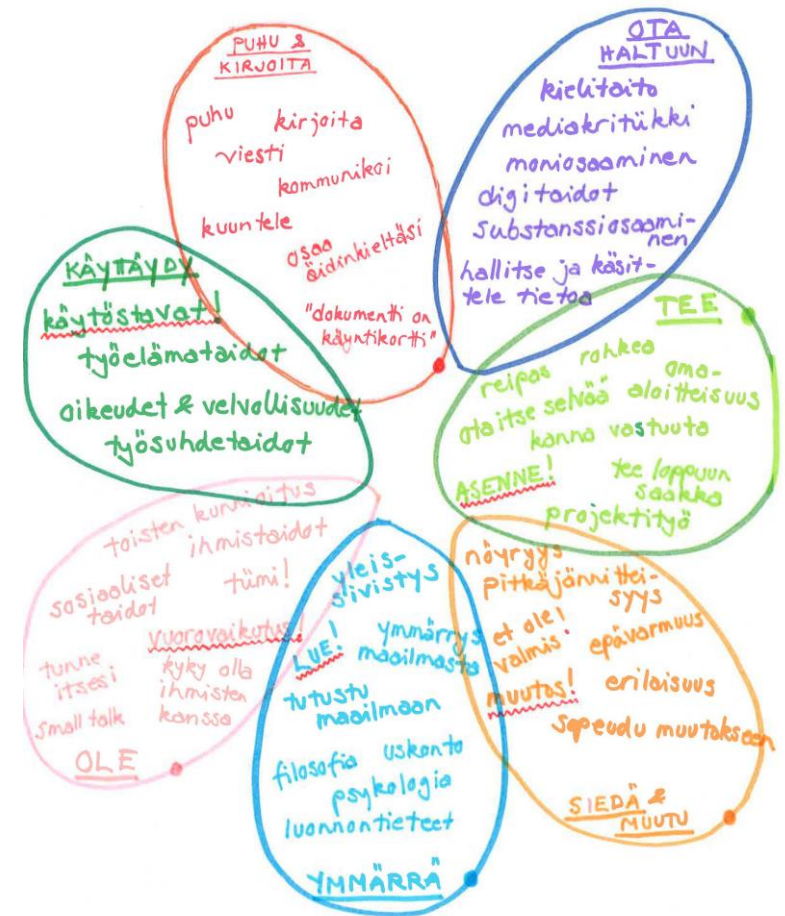 PUHU &
KIRJOITA
puhu
kirjoita
viesti
kommunikoi
kuuntele
osaa
äidinkieltäsi
"dokumentti on
käyntikortti"
OTA
HALTUUN
kielitaito
mediakritiikki
moniosaaminen
digitaidot
substanssiosaami-
nen
hallitse ja käsit-
tele tietoa
KÄYTTÄYDY
käytöstavat!
työelämätaidot
oikeudet & velvollisuudet
työsuhdetaidot
TEE
reipas
rohkea
oma-
aloitteisuus
ota itse selvää
kanna vastuuta
ASENNE!
tee loppuun
saakka
projektityö
toisten kunnioitus
ihmistaidot
sosiaaliset
taidot
tiimi!
vuorovaikutus!
tunne
itsesi
kyky olla
ihmisten
kanssa
small talk
OLE
yleis-
sivistys
LUE!
ymmärrys
maailmasta
tutustu
maailmaan
filosofia
uskonto
psykologia
luonnontieteet
YMMÄRRÄ
nöyryys
pitkäjännittei-
syys
et ole!
valmis!
epävarmuus
muutos!
erilaisuus
sopeudu muutokseen
SIEDÄ &
MUUTU